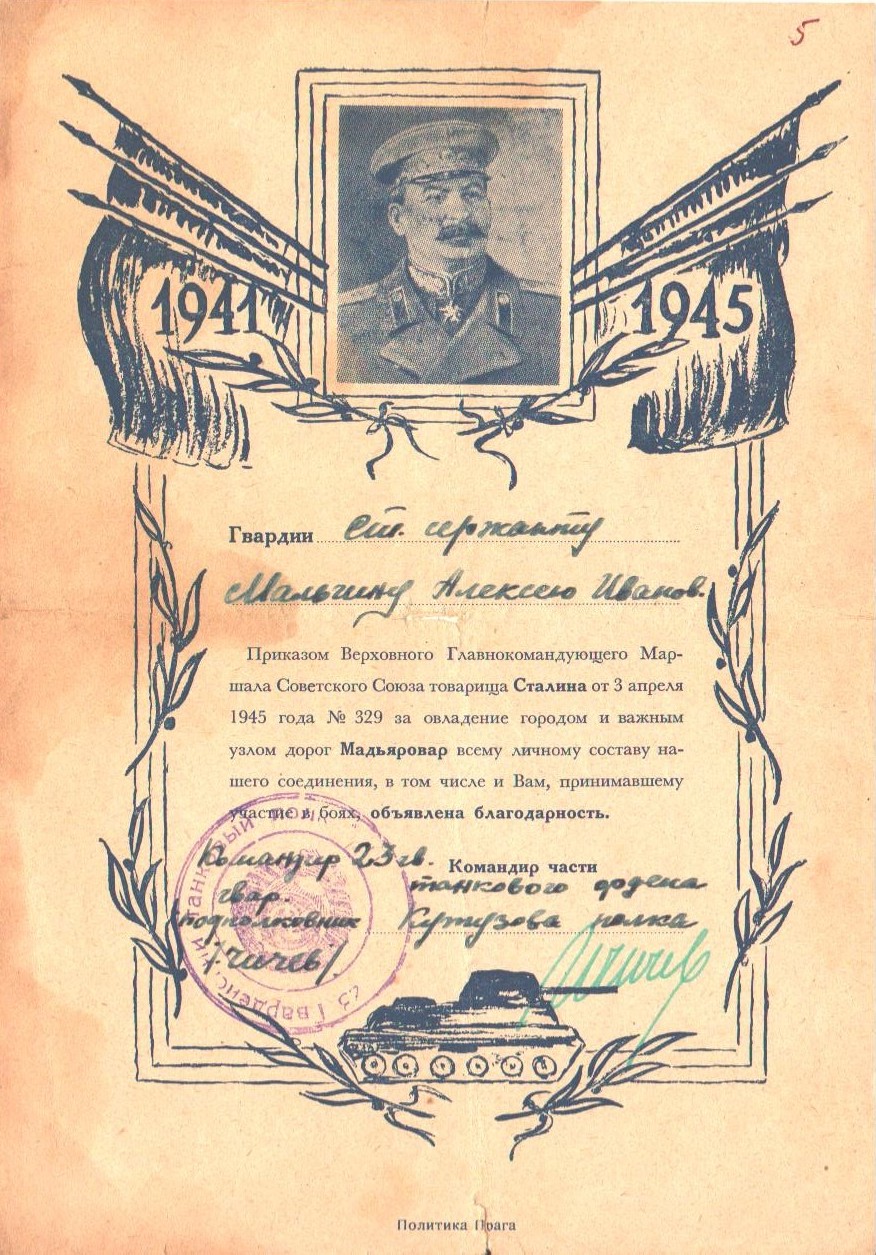 5
1941
1945
Гвардии ст. сержанту
Мальгину Алексею Иванов.
Приказом Верховного Главнокомандующего Мар-
шала Советского Союза товарища Сталина от 3 апреля
1945 года № 329 за овладение городом и важным
узлом дорог Мадьяровар всему личному составу на-
шего соединения, в том числе и Вам, принимавшему
участие в боях, объявлена благодарность.
Командир 23 гв.
Командир части
танкового ордена
гвар.
подполковник
Кутузова полка
/Чичев/
23 Гвардейский танковый
Политика Прага